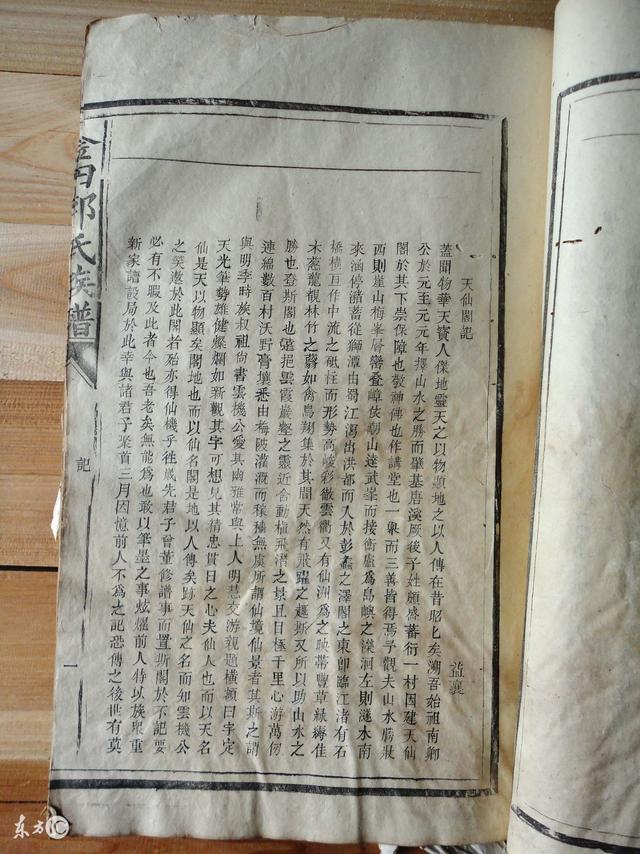 天仙閣記
益襄
蓋聞物華天寶人傑地靈天之以物顯地之以人傳在昔昭匕矣溯吾始祖南卿
公於元至元元年擇山水之勝而肇基唐溪厥後子姓頗盛蕃衍一村因建天仙
閣於其下崇保障也敬神佛也作講堂也一舉而三善皆得焉予觀夫山水勝狀
西則崖山梅峯層巒叠嶂使朝山達武峯而接衡廬為島嶼之濚洄左則遂水南
來涵停滀蓄從獅潭由蜀江瀉出洪都而入於彭蠡之澤閣之東卽臨江渚有石
橋橫亙作中流之砥柱而形勢高峻彩徹雲衢又有仙洲為之映帶豐草綠縟佳
木葱蘢覩林竹之蓊如禽鳥翔集於其間天然有飛躍之趣斯又所以助山水之
勝也登斯閣也遠挹雲霞巖壑之靈近含動植飛潛之景且目極千里心游萬仞
連綿數百村沃野膏壤悉由梅陂灌溉而稼穡無虞所謂仙境仙景者其斯之謂
與明季時族叔祖尚書雲機公愛其幽雅常與上人明慧交游親題橫額曰字定
天光筆勢雄健燦爛如新觀其字可想見其精忠貫日之心夫仙人也而以天名
仙是天以物顯矣閣地也而以仙名閣是地以人傳矣跡天仙之名而知雲機公
之笑遨於此閣者殆亦得仙機乎徃歲先君子曾董修譜事而置斯閣於不記要
必有不暇及此者今也吾老矣無能為也敢以筆墨之事炫燿前人特以族衆重
新家譜設局於此幸與諸君子聚首三月因憶前人不為之記恐傳之後世有莫
氏族譜
記
一
东方